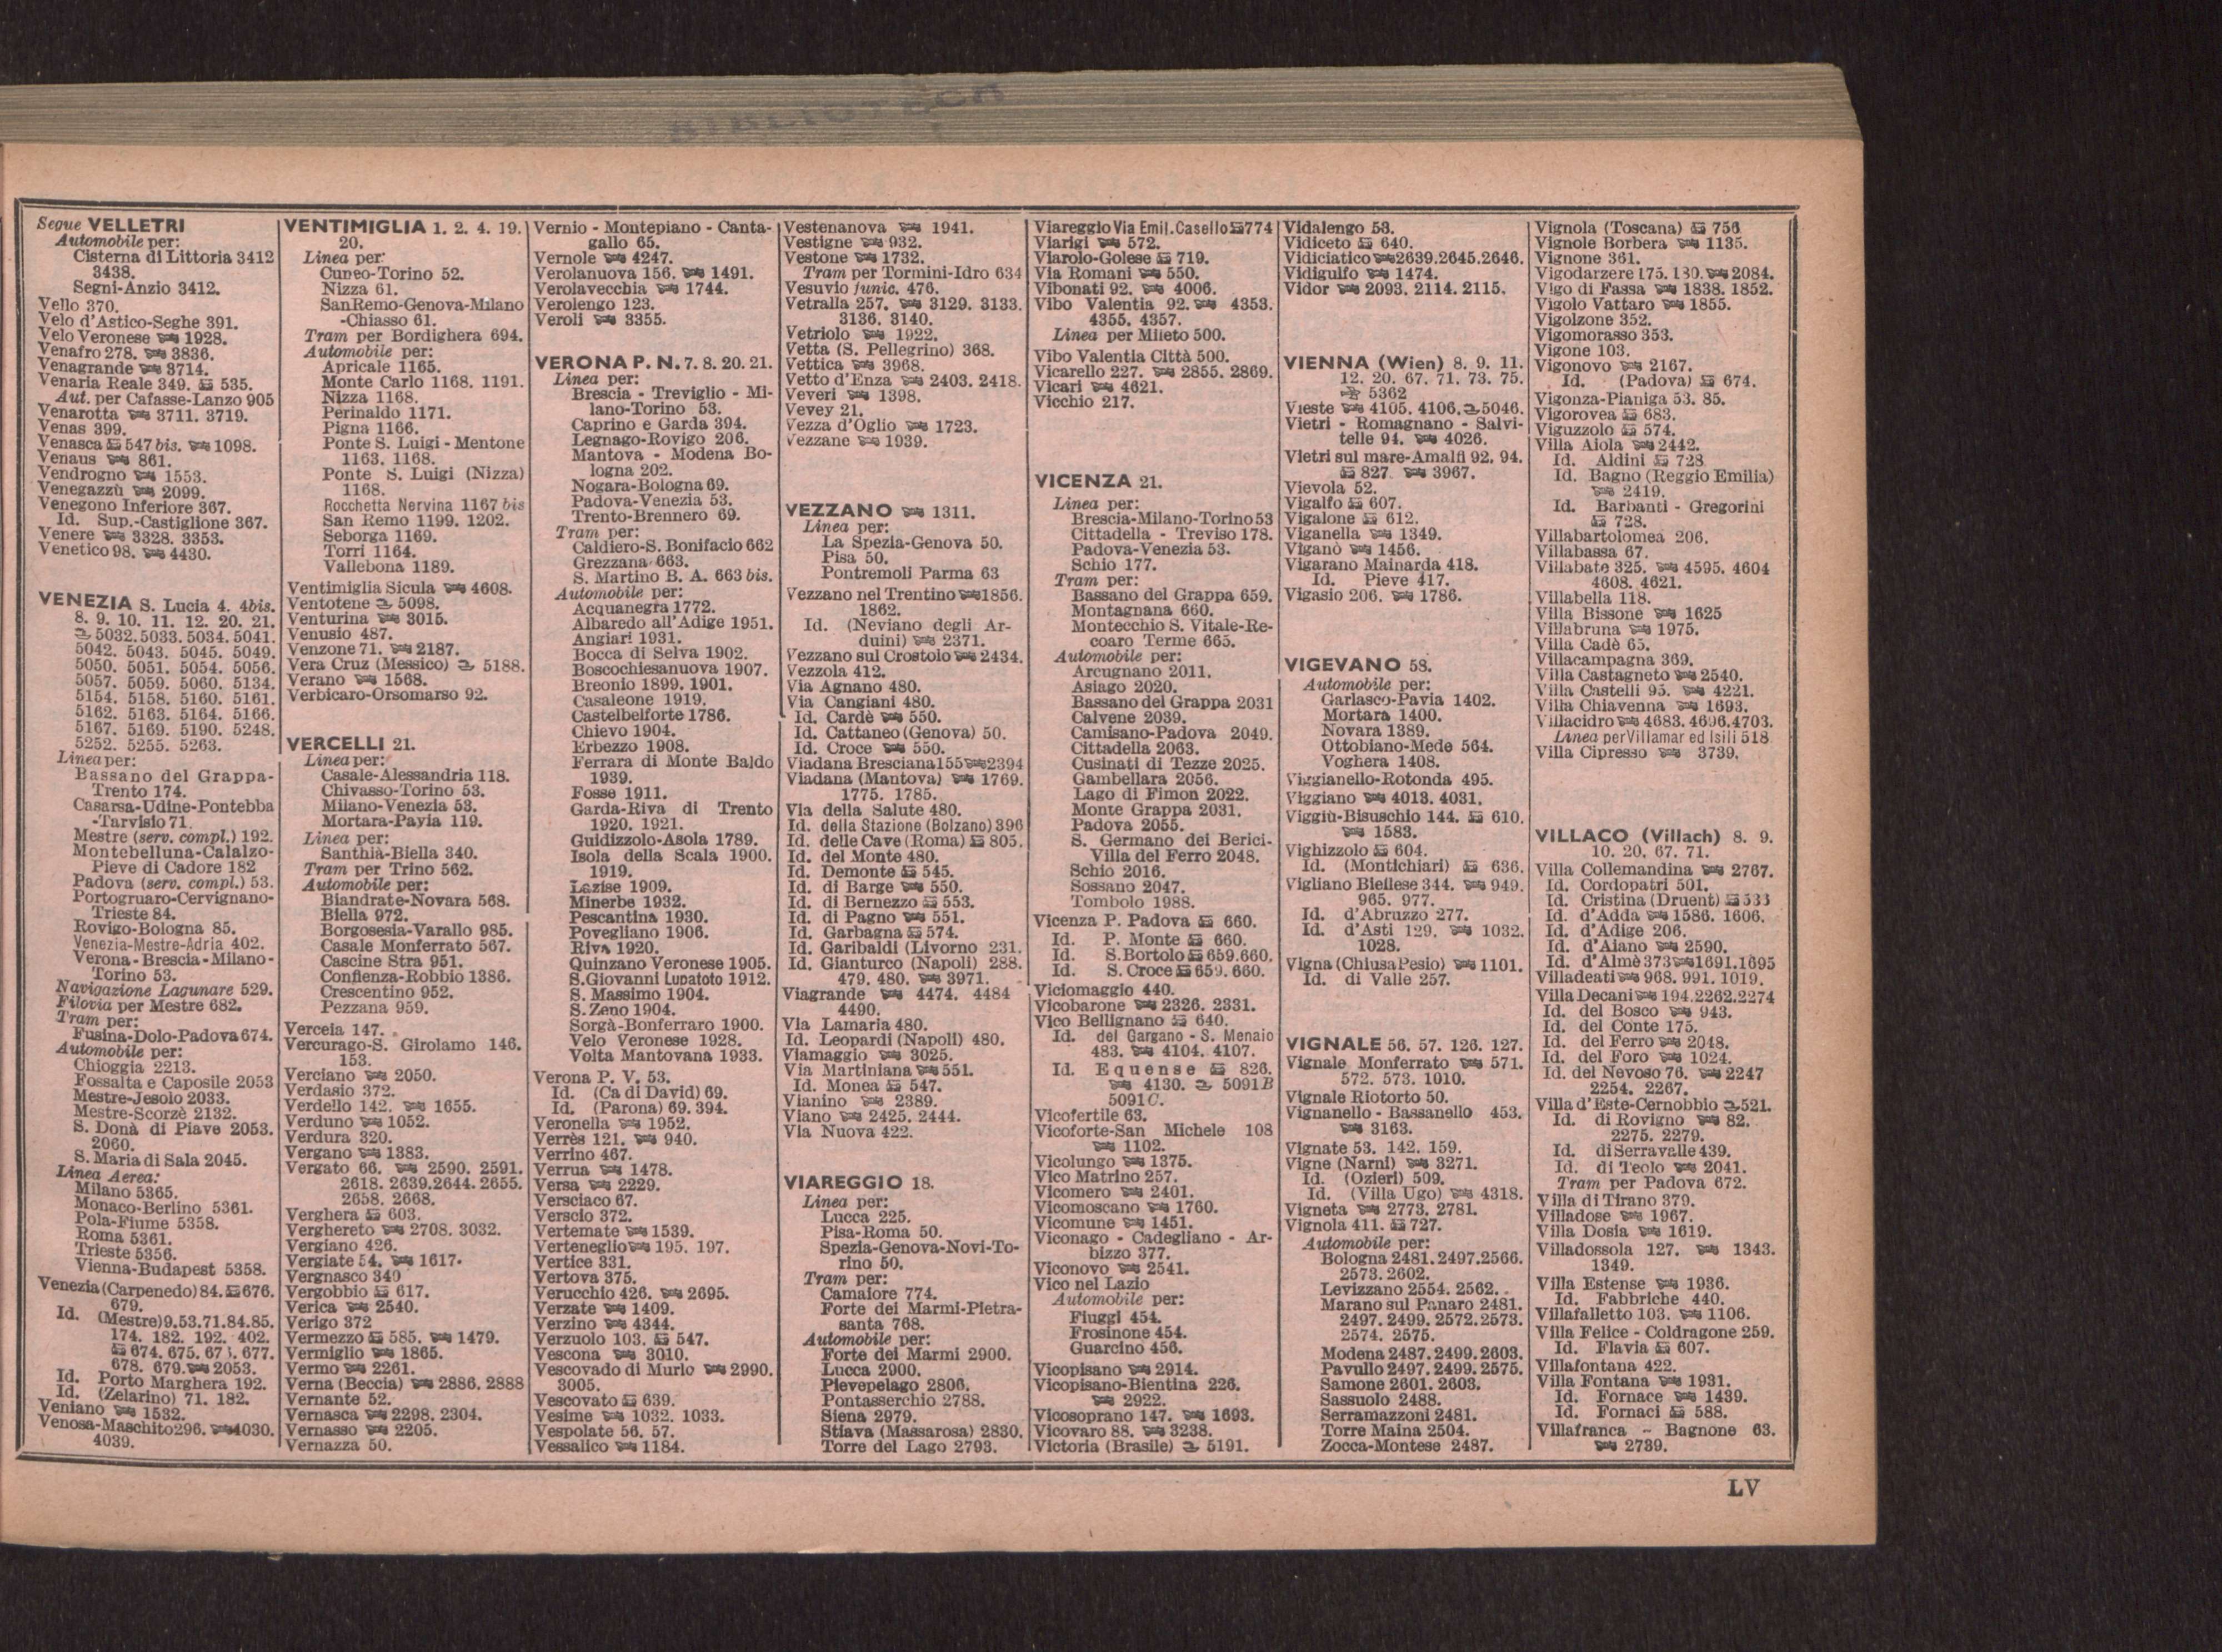 BIBLIOTECA
Segue VELLETRI
Automobile per:
Cisterna di Littoria 3412
3438.
Segni-Anzio 3412.
Vello 370.
Velo d'Astico-Seghe 391.
Velo Veronese 1928.
Venafro 278. 3836.
Venagrande 3714.
Venaria Reale 349. 535.
Aut. per Cafasse-Lanzo 905
Venarotta 3711. 3719.
Venas 399.
Venasca 547 bis. 1098.
Venaus 861.
Vendrogno 1553.
Venegazzù 2099.
Venegono Inferiore 367.
Id. Sup.-Castiglione 367.
Venere 3328. 3353.
Venetico 98. 4430.
VENEZIA S. Lucia 4. 4bis.
8. 9. 10. 11. 12. 20. 21.
5032. 5033. 5034. 5041.
5042. 5043. 5045. 5049.
5050. 5051. 5054. 5056.
5057. 5059. 5060. 5134.
5154. 5158. 5160. 5161.
5162. 5163. 5164. 5166.
5167. 5169. 5190. 5248.
5252. 5255. 5263.
Linea per:
Bassano del Grappa-
Trento 174.
Casarsa-Udine-Pontebba
-Tarvisio 71.
Mestre (serv. compl.) 192.
Montebelluna-Calalzo-
Pieve di Cadore 182
Padova (serv. compl.) 53.
Portogruaro-Cervignano-
Trieste 84.
Rovigo-Bologna 85.
Venezia-Mestre-Adria 402.
Verona-Brescia-Milano-
Torino 53.
Navigazione Lagunare 529.
Filovia per Mestre 682.
Tram per:
Fusina-Dolo-Padova 674.
Automobile per:
Chioggia 2213.
Fossalta e Caposile 2053
Mestre-Jesolo 2033.
Mestre-Scorzè 2132.
S. Donà di Piave 2053.
2060.
S. Maria di Sala 2045.
Linea Aerea:
Milano 5365.
Monaco-Berlino 5361.
Pola-Fiume 5358.
Roma 5361.
Trieste 5356.
Vienna-Budapest 5358.
Venezia (Carpenedo) 84. 676.
679.
Id. (Mestre) 9.53.71.84.85.
174. 182. 192. 402.
674. 675. 677.
678. 679. 2053.
Id. Porto Marghera 192.
Id. (Zelarino) 71. 182.
Veniano 1532.
Venosa-Maschito 296. 4030.
4039.
VENTIMIGLIA 1. 2. 4. 19.
20.
Linea per:
Cuneo-Torino 52.
Nizza 61.
SanRemo-Genova-Milano
-Chiasso 61.
Tram per Bordighera 694.
Automobile per:
Apricale 1165.
Monte Carlo 1168. 1191.
Nizza 1168.
Perinaldo 1171.
Pigna 1166.
Ponte S. Luigi - Mentone
1163. 1168.
Ponte S. Luigi (Nizza)
1168.
Rocchetta Nervina 1167 bis
San Remo 1199. 1202.
Seborga 1169.
Torri 1164.
Vallebona 1189.
Ventimiglia Sicula 4608.
Ventotene 5098.
Venturina 3015.
Venusio 487.
Venzone 71. 2187.
Vera Cruz (Messico) 5188.
Verano 1568.
Verbicaro-Orsomarso 92.
VERCELLI 21.
Linea per:
Casale-Alessandria 118.
Chivasso-Torino 53.
Milano-Venezia 53.
Mortara-Pavia 119.
Linea per:
Santhià-Biella 340.
Tram per Trino 562.
Automobile per:
Biandrate-Novara 568.
Biella 972.
Borgosesia-Varallo 985.
Casale Monferrato 567.
Cascine Stra 951.
Confienza-Robbio 1386.
Crescentino 952.
Pezzana 959.
Verceia 147.
Vercurago-S. Girolamo 146.
153.
Verciano 2050.
Verdasio 372.
Verdello 142. 1655.
Verduno 1052.
Verdura 320.
Vergano 1383.
Vergato 66. 2590. 2591.
2618. 2639. 2644. 2655.
2658. 2668.
Verghera 603.
Verghereto 2708. 3032.
Vergiano 426.
Vergiate 54. 1617.
Vergnasco 340
Vergobbio 617.
Verica 2540.
Verigo 372
Vermezzo 585. 1479.
Vermiglio 1865.
Vermo 2261.
Verna (Beccia) 2886. 2888
Vernante 52.
Vernasca 2298. 2304.
Vernasso 2205.
Vernazza 50.
Vernio - Montepiano - Canta-
gallo 65.
Vernole 4247.
Verolanuova 156. 1491.
Verolavecchia 1744.
Verolengo 123.
Veroli 3355.
VERONA P. N. 7. 8. 20. 21.
Linea per:
Brescia - Treviglio - Mi-
lano-Torino 53.
Caprino e Garda 394.
Legnago-Rovigo 206.
Mantova - Modena Bo-
logna 202.
Nogara-Bologna 69.
Padova-Venezia 53.
Trento-Brennero 69.
Tram per:
Caldiero-S. Bonifacio 662
Grezzana 663.
S. Martino B. A. 663 bis.
Automobile per:
Acquanegra 1772.
Albaredo all'Adige 1951.
Angiari 1931.
Bocca di Selva 1902.
Boscochiesanuova 1907.
Breonio 1899. 1901.
Casaleone 1919.
Castelbelforte 1786.
Chievo 1904.
Erbezzo 1908.
Ferrara di Monte Baldo
1939.
Fosse 1911.
Garda-Riva di Trento
1920. 1921.
Guidizzolo-Asola 1789.
Isola della Scala 1900.
1919.
Lazise 1909.
Minerbe 1932.
Pescantina 1930.
Povegliano 1906.
Riva 1920.
Quinzano Veronese 1905.
S.Giovanni Lupatoto 1912.
S. Massimo 1904.
S. Zeno 1904.
Sorgà-Bonferraro 1900.
Velo Veronese 1928.
Volta Mantovana 1933.
Verona P. V. 53.
Id. (Ca di David) 69.
Id. (Parona) 69. 394.
Veronella 1952.
Verrès 121. 940.
Verrino 467.
Verrua 1478.
Versa 2229.
Versciaco 67.
Verscio 372.
Vertemate 1539.
Verteneglio 195. 197.
Vertice 331.
Vertova 375.
Verucchio 426. 2695.
Verzate 1409.
Verzino 4344.
Verzuolo 103. 547.
Vescona 3010.
Vescovado di Murlo 2990.
3005.
Vescovato 639.
Vesime 1032. 1033.
Vespolate 56. 57.
Vessalico 1184.
Vestenanova 1941.
Vestigne 932.
Vestone 1732.
Tram per Tormini-Idro 634
Vesuvio funic. 476.
Vetralla 257. 3129. 3133.
3136. 3140.
Vetriolo 1922.
Vetta (S. Pellegrino) 368.
Vettica 3968.
Vetto d'Enza 2403. 2418.
Veveri 1398.
Vevey 21.
Vezza d'Oglio 1723.
Vezzane 1939.
VEZZANO 1311.
Linea per:
La Spezia-Genova 50.
Pisa 50.
Pontremoli Parma 63
Vezzano nel Trentino 1856.
1862.
Id. (Neviano degli Ar-
duini) 2371.
Vezzano sul Crostolo 2434.
Vezzola 412.
Via Agnano 480.
Via Cangiani 480.
Id. Cardè 550.
Id. Cattaneo (Genova) 50.
Id. Croce 550.
Viadana Bresciana 155 2394
Viadana (Mantova) 1769.
1775. 1785.
Via della Salute 480.
Id. della Stazione (Bolzano) 396
Id. delle Cave (Roma) 805.
Id. del Monte 480.
Id. Demonte 545.
Id. di Barge 550.
Id. di Bernezzo 553.
Id. di Pagno 551.
Id. Garbagna 574.
Id. Garibaldi (Livorno 231.
Id. Gianturco (Napoli) 288.
479. 480. 3971.
Viagrande 4474. 4484
4490.
Via Lamaria 480.
Id. Leopardi (Napoli) 480.
Viamaggio 3025.
Via Martiniana 551.
Id. Monea 547.
Vianino 2389.
Viano 2425. 2444.
Via Nuova 422.
VIAREGGIO 18.
Linea per:
Lucca 225.
Pisa-Roma 50.
Spezia-Genova-Novi-To-
rino 50.
Tram per:
Camaiore 774.
Forte dei Marmi-Pietra-
santa 768.
Automobile per:
Forte dei Marmi 2900.
Lucca 2900.
Pievepelago 2806.
Pontasserchio 2788.
Siena 2979.
Stiava (Massarosa) 2830.
Torre del Lago 2793.
Viareggio Via Emil. Casello 774
Viarigi 572.
Viarolo-Golese 719.
Via Romani 550.
Vibonati 92. 4006.
Vibo Valentia 92. 4353.
4355. 4357.
Linea per Mileto 500.
Vibo Valentia Città 500.
Vicarello 227. 2855. 2869.
Vicari 4621.
Vicchio 217.
VICENZA 21.
Linea per:
Brescia-Milano-Torino 53
Cittadella - Treviso 178.
Padova-Venezia 53.
Schio 177.
Tram per:
Bassano del Grappa 659.
Montagnana 660.
Montecchio S. Vitale-Re-
coaro Terme 665.
Automobile per:
Arcugnano 2011.
Asiago 2020.
Bassano del Grappa 2031
Calvene 2039.
Camisano-Padova 2049.
Cittadella 2063.
Cusinati di Tezze 2025.
Gambellara 2056.
Lago di Fimon 2022.
Monte Grappa 2031.
Padova 2055.
S. Germano dei Berici-
Villa del Ferro 2048.
Schio 2016.
Sossano 2047.
Tombolo 1988.
Vicenza P. Padova 660.
Id. P. Monte 660.
Id. S.Bortolo 659.660.
Id. S. Croce 659. 660.
Viciomaggio 440.
Vicobarone 2326. 2331.
Vico Bellignano 640.
Id. del Gargano - S. Menaio
483. 4104. 4107.
Id. Equense 826.
4130. 5091B
5091C.
Vicofertile 63.
Vicoforte-San Michele 108
1102.
Vicolungo 1375.
Vico Matrino 257.
Vicomero 2401.
Vicomoscano 1760.
Vicomune 1451.
Viconago - Cadegliano - Ar-
bizzo 377.
Viconovo 2541.
Vico nel Lazio
Automobile per:
Fiuggi 454.
Frosinone 454.
Guarcino 456.
Vicopisano 2914.
Vicopisano-Bientina 226.
2922.
Vicosoprano 147. 1693.
Vicovaro 88. 3238.
Victoria (Brasile) 5191.
Vidalengo 53.
Vidiceto 640.
Vidiciatico 2639.2645.2646.
Vidigulfo 1474.
Vidor 2093. 2114. 2115.
VIENNA (Wien) 8. 9. 11.
12. 20. 67. 71. 73. 75.
5362
Vieste 4105. 4106. 5046.
Vietri - Romagnano - Salvi-
telle 94. 4026.
Vietri sul mare-Amalfi 92. 94.
827. 3967.
Vievola 52.
Vigalfo 607.
Vigalone 612.
Viganella 1349.
Viganò 1456.
Vigarano Mainarda 418.
Id. Pieve 417.
Vigasio 206. 1786.
VIGEVANO 58.
Automobile per:
Garlasco-Pavia 1402.
Mortara 1400.
Novara 1389.
Ottobiano-Mede 564.
Voghera 1408.
Viggianello-Rotonda 495.
Viggiano 4013. 4031.
Viggiù-Bisuschio 144. 610.
1583.
Vighizzolo 604.
Id. (Montichiari) 636.
Vigliano Biellese 344. 949.
965. 977.
Id. d'Abruzzo 277.
Id. d'Asti 129. 1032.
1028.
Vigna (Chiusa Pesio) 1101.
Id. di Valle 257.
VIGNALE 56. 57. 126. 127.
Vignale Monferrato 571.
572. 573. 1010.
Vignale Riotorto 50.
Vignanello - Bassanello 453.
3163.
Vignate 53. 142. 159.
Vigne (Narni) 3271.
Id. (Ozieri) 509.
Id. (Villa Ugo) 4318.
Vigneta 2773. 2781.
Vignola 411. 727.
Automobile per:
Bologna 2481.2497.2566.
2573. 2602.
Levizzano 2554. 2562.
Marano sul Panaro 2481.
2497. 2499. 2572.2573.
2574. 2575.
Modena 2487.2499.2603.
Pavullo 2497. 2499. 2575.
Samone 2601. 2603.
Sassuolo 2488.
Serramazzoni 2481.
Torre Maina 2504.
Zocca-Montese 2487.
Vignola (Toscana) 756
Vignole Borbera 1135.
Vignone 361.
Vigodarzere 175. 180. 2084.
Vigo di Fassa 1838. 1852.
Vigolo Vattaro 1855.
Vigolzone 352.
Vigomorasso 353.
Vigone 103.
Vigonovo 2167.
Id. (Padova) 674.
Vigonza-Pianiga 53. 85.
Vigorovea 683.
Viguzzolo 574.
Villa Aiola 2442.
Id. Aldini 728
Id. Bagno (Reggio Emilia)
2419.
Id. Barbanti - Gregorini
728.
Villabartolomea 206.
Villabassa 67.
Villabate 325. 4595. 4604
4608. 4621.
Villabella 118.
Villa Bissone 1625
Villabruna 1975.
Villa Cadè 65.
Villacampagna 369.
Villa Castagneto 2540.
Villa Castelli 95. 4221.
Villa Chiavenna 1693.
Villacidro 4683. 4696.4703.
Linea per Villamar ed Isili 518
Villa Cipresso 3739.
VILLACO (Villach) 8. 9.
10. 20. 67. 71.
Villa Collemandina 2767.
Id. Cordopatri 501.
Id. Cristina (Druent) 533
Id. d'Adda 1586. 1606.
Id. d'Adige 206.
Id. d'Aiano 2590.
Id. d'Almè 373 1691.1695
Villadeati 968. 991. 1019.
Villa Decani 194.2262.2274
Id. del Bosco 943.
Id. del Conte 175.
Id. del Ferro 2048.
Id. del Foro 1024.
Id. del Nevoso 76. 2247
2254. 2267.
Villa d'Este-Cernobbio 521.
Id. di Rovigno 82.
2275. 2279.
Id. di Serravalle 439.
Id. di Teolo 2041.
Tram per Padova 672.
Villa di Tirano 379.
Villadose 1967.
Villa Dosia 1619.
Villadossola 127. 1343.
1349.
Villa Estense 1936.
Id. Fabbriche 440.
Villafalletto 103. 1106.
Villa Felice - Coldragone 259.
Id. Flavia 607.
Villafontana 422.
Villa Fontana 1931.
Id. Fornace 1439.
Id. Fornaci 588.
Villafranca - Bagnone 63.
2739.
LV